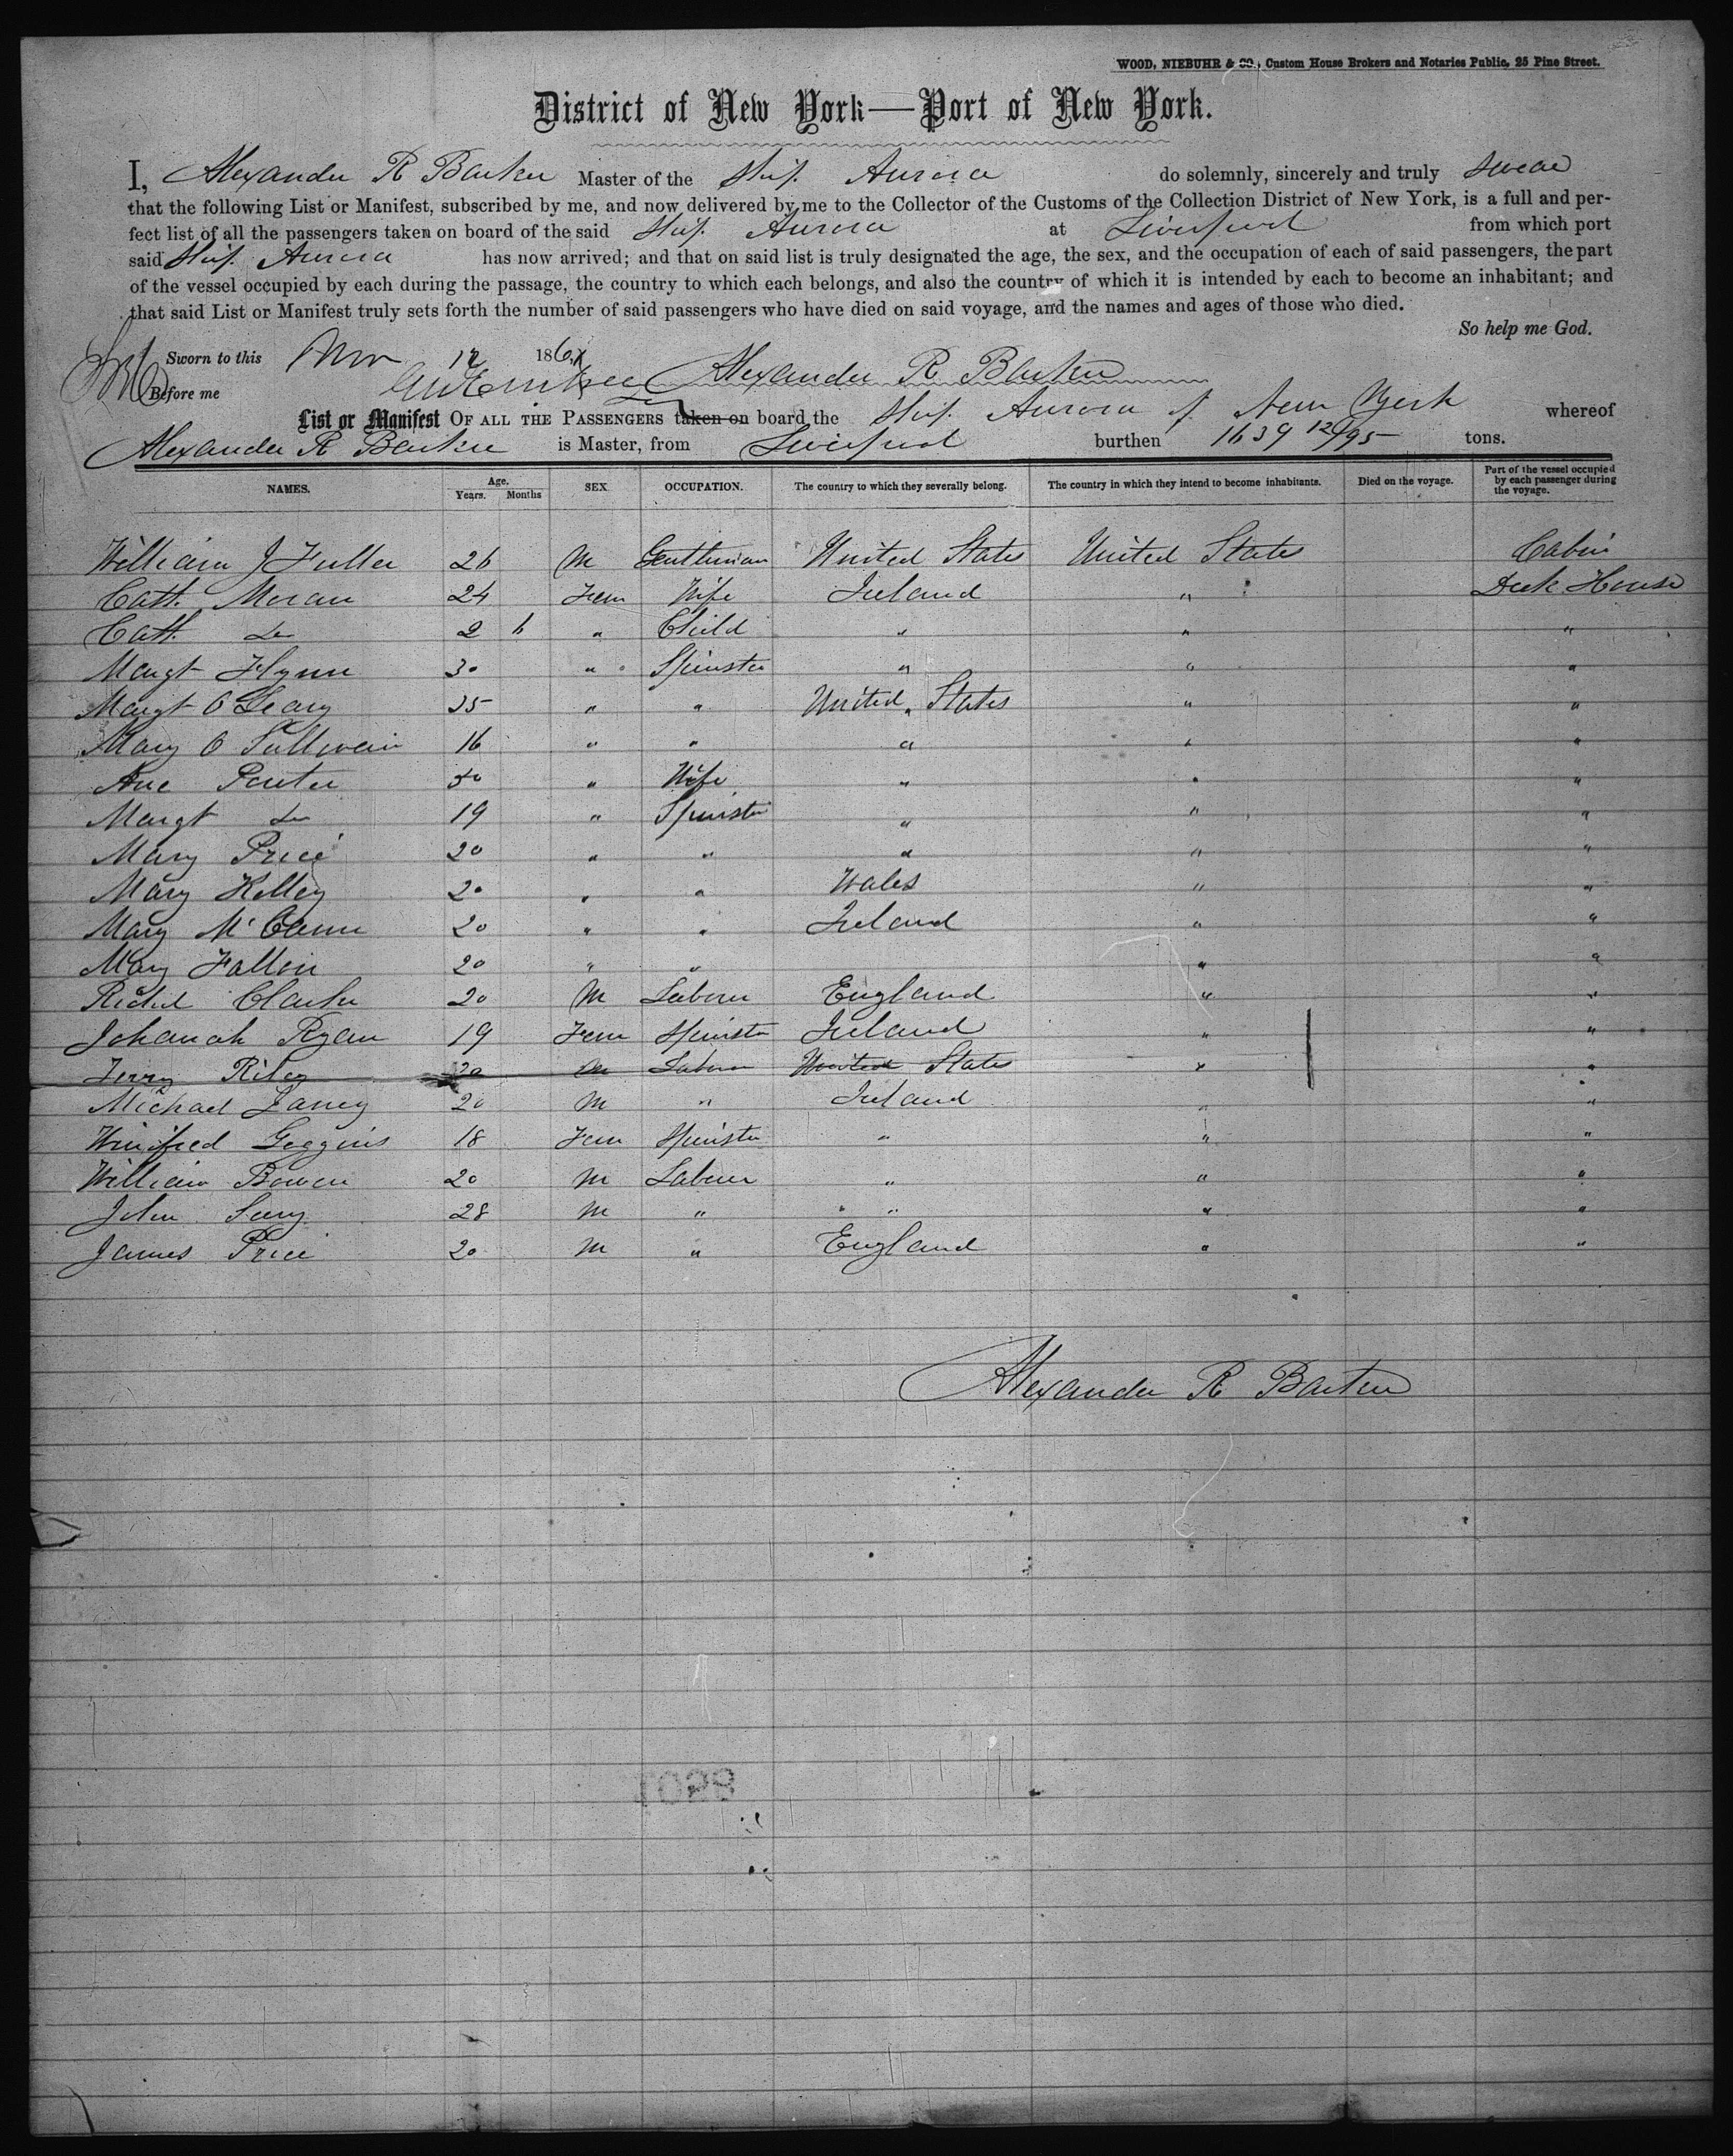 WOOD, NIEBUHR & CO., Custom House Brokers and Notaries Public, 25 Pine Street.
District of New York—Port of New York.
I, Alexander R Barker Master of the Ship Aurora do solemnly, sincerely and truly swear
that the following List or Manifest, subscribed by me, and now delivered by me to the Collector of the Customs of the Collection District of New York, is a full and per-
fect list of all the passengers taken on board of the said Ship Aurora at Liverpool from which port
said Ship Aurora has now arrived; and that on said list is truly designated the age, the sex, and the occupation of each of said passengers, the part
of the vessel occupied by each during the passage, the country to which each belongs, and also the country of which it is intended by each to become an inhabitant; and
that said List or Manifest truly sets forth the number of said passengers who have died on said voyage, and the names and ages of those who died.
So help me God.
Sworn to this Nov 12 186
Before me Alexander R Barker
List or Manifest OF ALL THE PASSENGERS taken on board the Ship Aurora of New York whereof
Alexander R Barker is Master, from Liverpool burthen 1639 12/95 tons.
NAMES. Age. Years. Months SEX OCCUPATION. The country to which they severally belong. The country in which they intend to become inhabitants. Died on the voyage. Part of the vessel occupied by each passenger during the voyage.
William J Fuller 26 M Gentleman United States United States Cabin
Cath. Moran 24 Fem Wife Ireland " Deck House
Cath. Do 2 6 " Child " " "
Margt Flynn 30 " Spinster " " "
Margt O Leary 35 " " United States " "
Mary O Sullivan 16 " " " " "
Ane Porter 50 " Wife " " "
Margt Do 19 " Spinster " " "
Mary Price 20 " " " " "
Mary Kelley 20 " " Wales " "
Mary McCann 20 " " Ireland " "
Mary Fallon 20 " " " "
Richd Clarke 20 M Laborer England " "
Johanah Ryan 19 Fem Spinster Ireland " "
Jerry Riley 20 M Laborer United States " "
Michael 20 M " Ireland " "
Winifred Goggins 18 Fem Spinster " " "
William Bowen 20 M Laborer " " "
John 28 M " " " "
James Price 20 M " England " "
Alexander R Barker